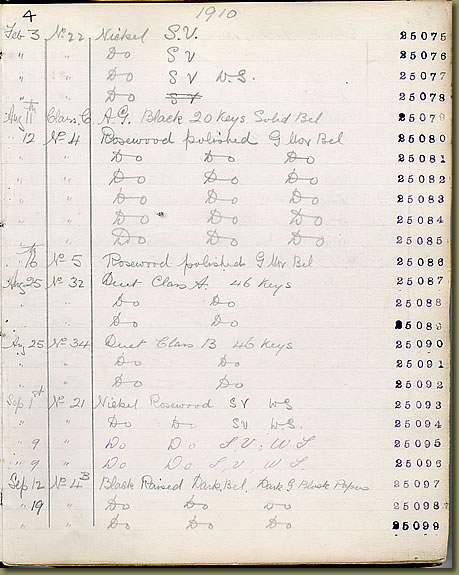 4 1910
Feb 3 No 22 Nickel S.V. 25075
" " Do S V 25076
" " Do S V W.S. 25077
" " Do S V 25078
Aug 11th Class C A.G. Black 20 Keys Solid Bel 25079
" 12 No 4 Rosewood polished G Mor Bel 25080
" " Do Do Do 25081
" " Do Do Do 25082
" " Do Do Do 25083
" " Do Do Do 25084
" " Do Do Do 25085
" th No 5 Rosewood polished G Mor Bel 25086
Aug 25 No 32 Duet Class A. 46 Keys 25087
" " Do Do 25088
" " Do Do 25089
Aug 25 No 34 Duet Class B 46 Keys 25090
" " Do Do 25091
" " Do Do 25092
Sep 1st No 21 Nickel Rosewood SV WS 25093
" " Do Do SV W.S. 25094
" 9 " Do Do S.V; W S. 25095
" 9 " Do Do S, V; W S. 25096
Sep 12 No 4B Black Raised Dark. Bel. Dark G Black Papers 25097
" 19 " Do Do Do 25098
" " Do Do Do 25099